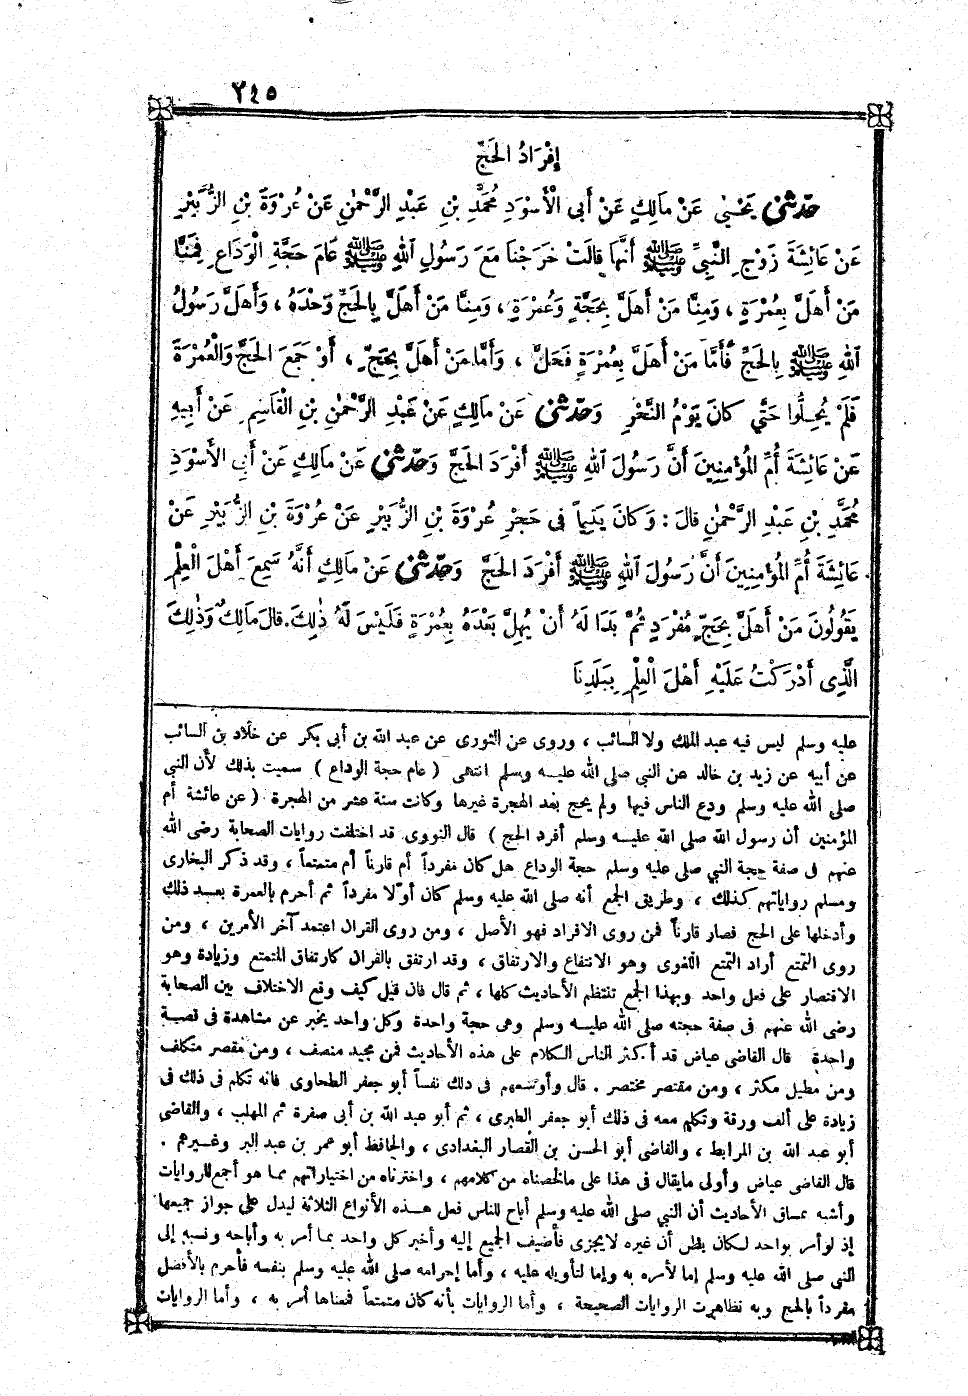 ٣٤٥
إِفْرَادُ الحَجِّ
حَدَّثَنِى يَحْيَى عَنْ مَالِكٍ عَنْ أَبِى الْأَسْوَدِ مُحَمَّدِ بْنِ عَبْدِ الرَّحْمٰنِ عَنْ عُرْوَةَ بْنِ الزُّبَيْرِ
عَنْ عَائِشَةَ زَوْجِ النَّبِىِّ ﷺ أَنَّهَا قَالَتْ خَرَجْنَا مَعَ رَسُولِ اللهِ ﷺ عَامَ حَجَّةِ الْوَدَاعِ فَمِنَّا
مَنْ أَهَلَّ بِعُمْرَةٍ ، وَمِنَّا مَنْ أَهَلَّ بِحَجَّةٍ وَعُمْرَةٍ ، وَمِنَّا مَنْ أَهَلَّ بِالحَجِّ وَحْدَهُ ، وَأَهَلَّ رَسُولُ
اللهِ ﷺ بِالحَجِّ فَأَمَّا مَنْ أَهَلَّ بِعُمْرَةٍ فَحَلَّ ، وَأَمَّا مَنْ أَهَلَّ بِحَجٍّ ، أَوْ جَمَعَ الحَجَّ وَالْعُمْرَةَ
فَلَمْ يُحِلُّوا حَتَّى كَانَ يَوْمُ النَّحْرِ وَحَدَّثَنِى عَنْ مَالِكٍ عَنْ عَبْدِ الرَّحْمٰنِ بْنِ الْقَاسِمِ عَنْ أَبِيهِ
عَنْ عَائِشَةَ أُمِّ المُؤْمِنِينَ أَنَّ رَسُولَ اللهِ ﷺ أَفْرَدَ الحَجَّ وَحَدَّثَنِى عَنْ مَالِكٍ عَنْ أَبِى الأَسْوَدِ
مُحَمَّدِ بْنِ عَبْدِ الرَّحْمٰنِ قَالَ : وَكَانَ يَتِيمًا فِى حَجْرِ عُرْوَةَ بْنِ الزُّبَيْرِ عَنْ عُرْوَةَ بْنِ الزُّبَيْرِ عَنْ
عَائِشَةَ أُمِّ المُؤْمِنِينَ أَنَّ رَسُولَ اللهِ ﷺ أَفْرَدَ الحَجَّ وَحَدَّثَنِى عَنْ مَالِكٍ أَنَّهُ سَمِعَ أَهْلَ الْعِلْمِ
يَقُولُونَ مَنْ أَهَلَّ بِحَجٍّ مُفْرَدٍ ثُمَّ بَدَا لَهُ أَنْ يُهِلَّ بَعْدَهُ بِعُمْرَةٍ فَلَيْسَ لَهُ ذٰلِكَ. قَالَ مَالِكٌ وَذٰلِكَ
الَّذِى أَدْرَكْتُ عَلَيْهِ أَهْلَ الْعِلْمِ بِبَلَدِنَا
عليه وسلم ليس فيه عبد الملك ولا السائب ، وروى عن الثورى عن عبد الله بن أبى بكر عن خلاد بن السائب
عن أبيه عن زيد بن خالد عن النبى صلى الله عليه وسلم انتهى ( عام حجة الوداع ) سميت بذلك لأن النبى
صلى الله عليه وسلم ودع الناس فيها ولم يحج بعد الهجرة غيرها وكانت سنة عشر من الهجرة ( عن عائشة أم
المؤمنين أن رسول الله صلى الله عليه وسلم أفرد الحج ) قال النووى قد اختلفت روايات الصحابة رضى الله
عنهم فى صفة حجة النبى صلى عليه وسلم حجة الوداع هل كان مفرداً أم قارناً أم متمتعاً ، وقد ذكر البخارى
ومسلم رواياتهم كذلك ، وطريق الجمع أنه صلى الله عليه وسلم كان أولا مفرداً ثم أحرم بالعمرة بعد ذلك
وأدخلها على الحج فصار قارناً فمن روى الافراد فهو الأصل ، ومن روى القران اعتمد آخر الأمرين ، ومن
روى التمتع أراد التمتع اللغوى وهو الانتفاع والارتفاق ، وقد ارتفق بالقران كارتفاق المتمتع وزيادة وهو
الاقتصار على فعل واحد وبهذا الجمع تنتظم الأحاديث كلها ، ثم قال فان قيل كيف وقع الاختلاف بين الصحابة
رضى الله عنهم فى صفة حجته صلى الله عليه وسلم وهى حجة واحدة وكل واحد يخبر عن مشاهدة فى قصة
واحدة قال القاضى عياض قد أكثر الناس الكلام على هذه الأحاديث فمن مجيد منصف ، ومن مقصر متكلف
ومن مطيل مكثر ، ومن مقتصر مختصر . قال وأوسعهم فى ذلك نفساً أبو جعفر الطحاوى فانه تكلم فى ذلك فى
زيادة على ألف ورقة وتكلم معه فى ذلك أبو جعفر الطبرى ، ثم أبو عبد الله بن أبى صفرة ثم المهلب ، والقاضى
أبو عبد الله بن المرابط ، والقاضى أبو الحسن بن القصار البغدادى ، والحافظ أبو عمر بن عبد البر وغيرهم .
قال القاضى عياض وأولى مايقال فى هذا على مالخصناه من كلامهم ، واخترناه من اختياراتهم مما هو أجمع للروايات
وأشبه بمساق الأحاديث أن النبى صلى الله عليه وسلم أباح للناس فعل هذه الأنواع الثلاثة ليدل على جواز جميعها
إذ لو أمر بواحد لكان يظن أن غيره لايجزى فأضيف الجميع إليه وأخبر كل واحد بما أمر به وأباحه ونسبه إلى
النبى صلى الله عليه وسلم إما لأمره به وإما لتأويله عليه ، وأما إحرامه صلى الله عليه وسلم بنفسه فأحرم بالأفضل
مفرداً بالحج وبه تظاهرت الروايات الصحيحة ، وأما الروايات بأنه كان متمتعاً فمعناها أمر به ، وأما الروايات